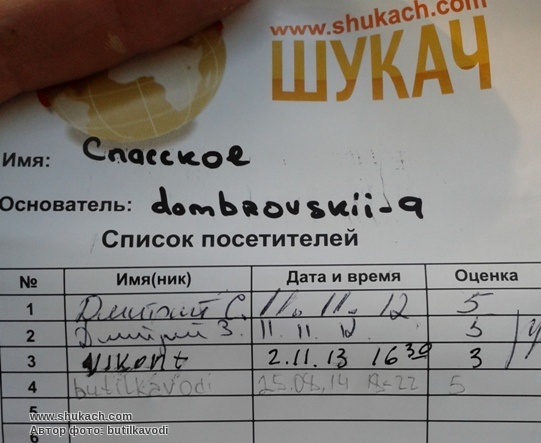 www.shukach.com
ШУКАЧ
Имя: Спасское
Основатель: dombrovskii-a
Список посетителей
№ Имя(ник) Дата и время Оценка
1 Дмитрий С. 11. 11. 12 5
2 Дмитрий З. 11. 11. 12 5
3 vikont 2.11.13 16 30 3
4 butilkavodi 25.08.14 5
5
6
www.shukach.com
Автор фото: butilkavodi